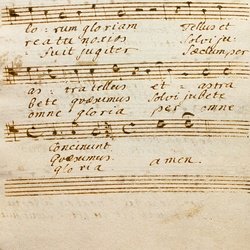 lo: rum gloriam Tellus et
rea tu nos ios Solvi ju:
suit jugiter Sæclum per
as: tra tellus et astra
Dete quæsimus Solvi jubete
omne gloria per omne
Concinunt
Quæsimus
gloria amen.